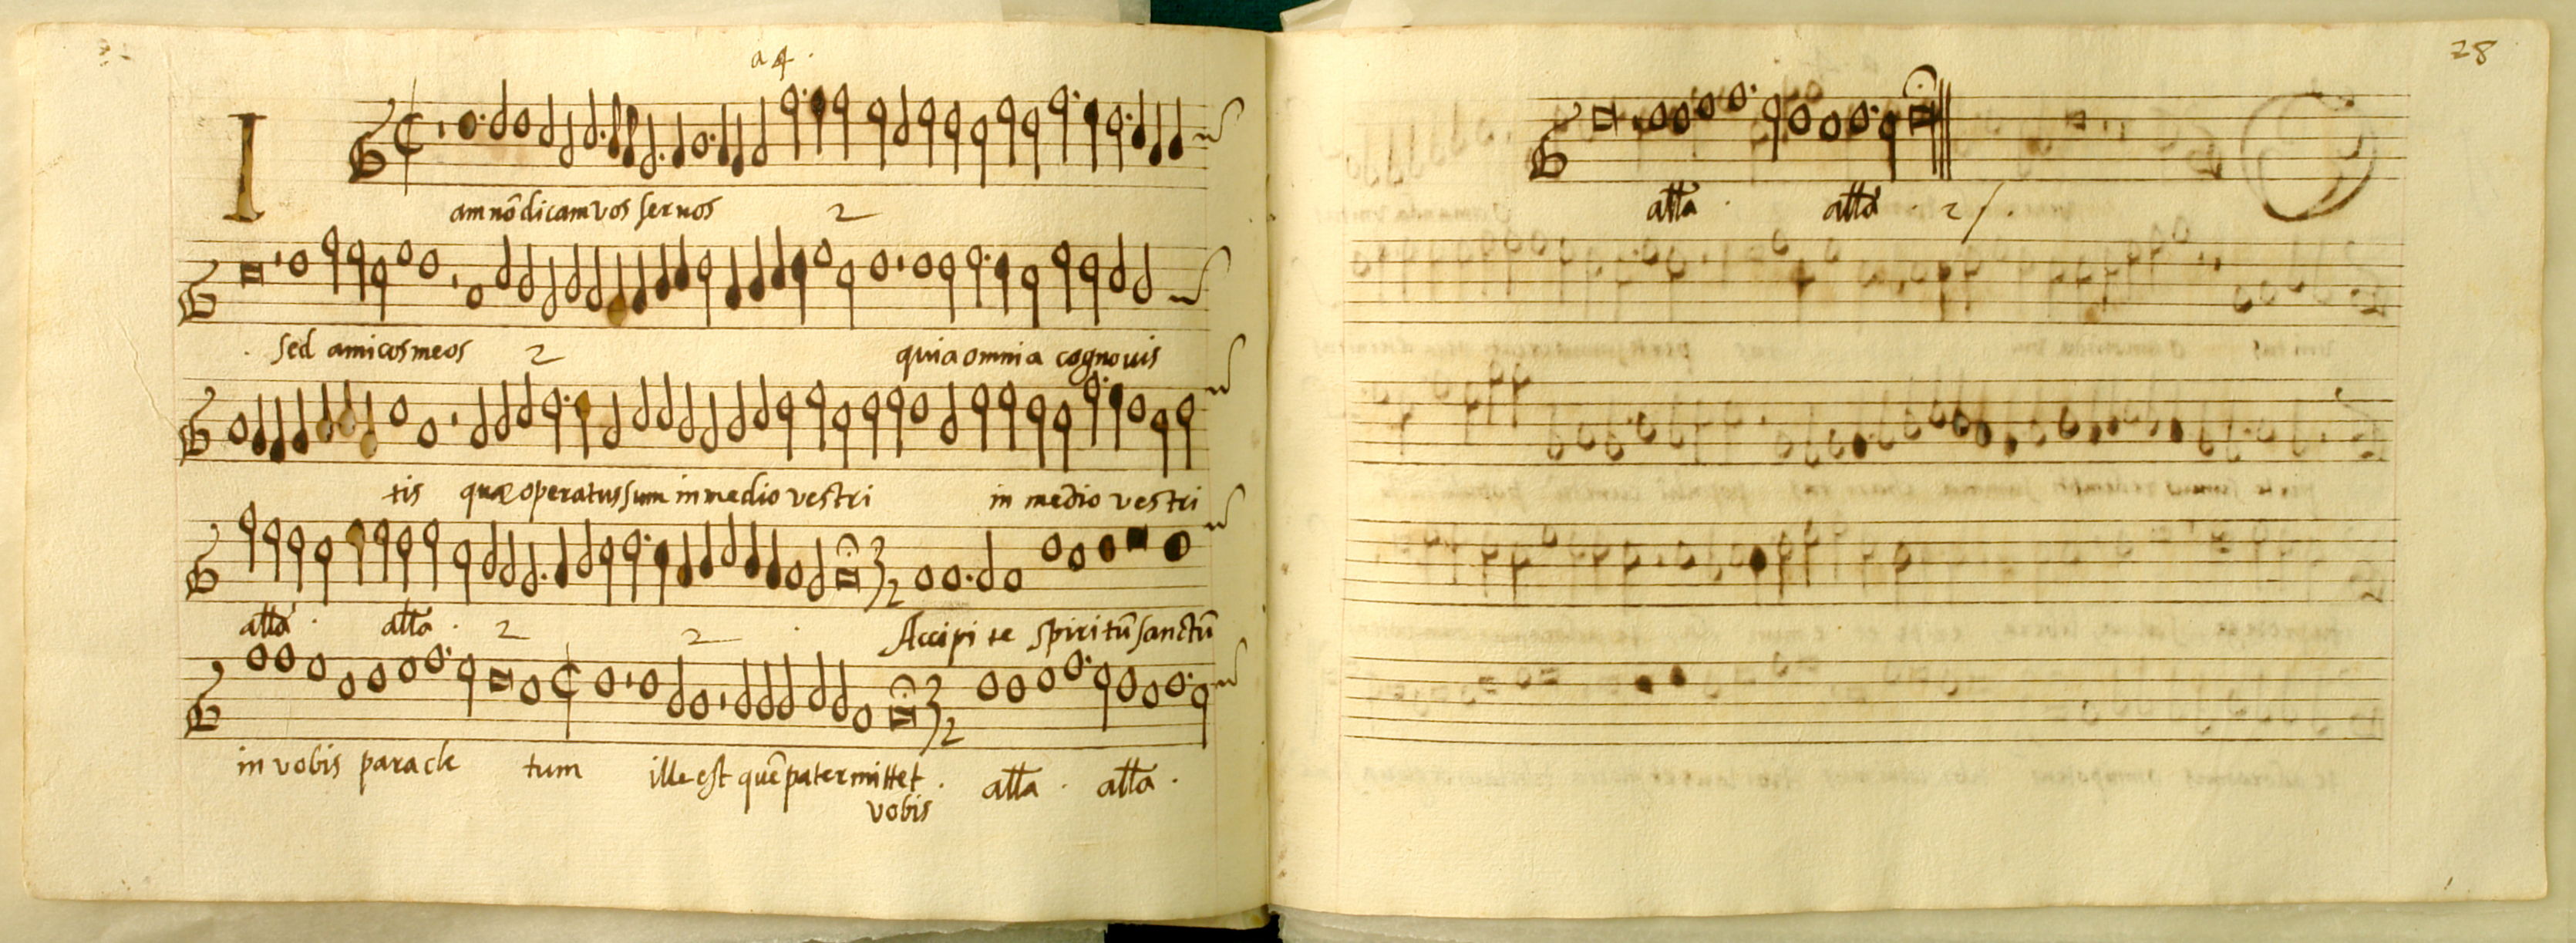 a 4.
I
am nō dicam vos servos 2
sed amicos meos 2 quia omnia cognovis
tis quæ operatus sum in medio vestri in medio vestri
alla . alla . 2 2 . Accipi te spiritū sanctū
in vobis paracle tum ille est quē pater mittet . alla . alla .
vobis
28
alla . alla . 2